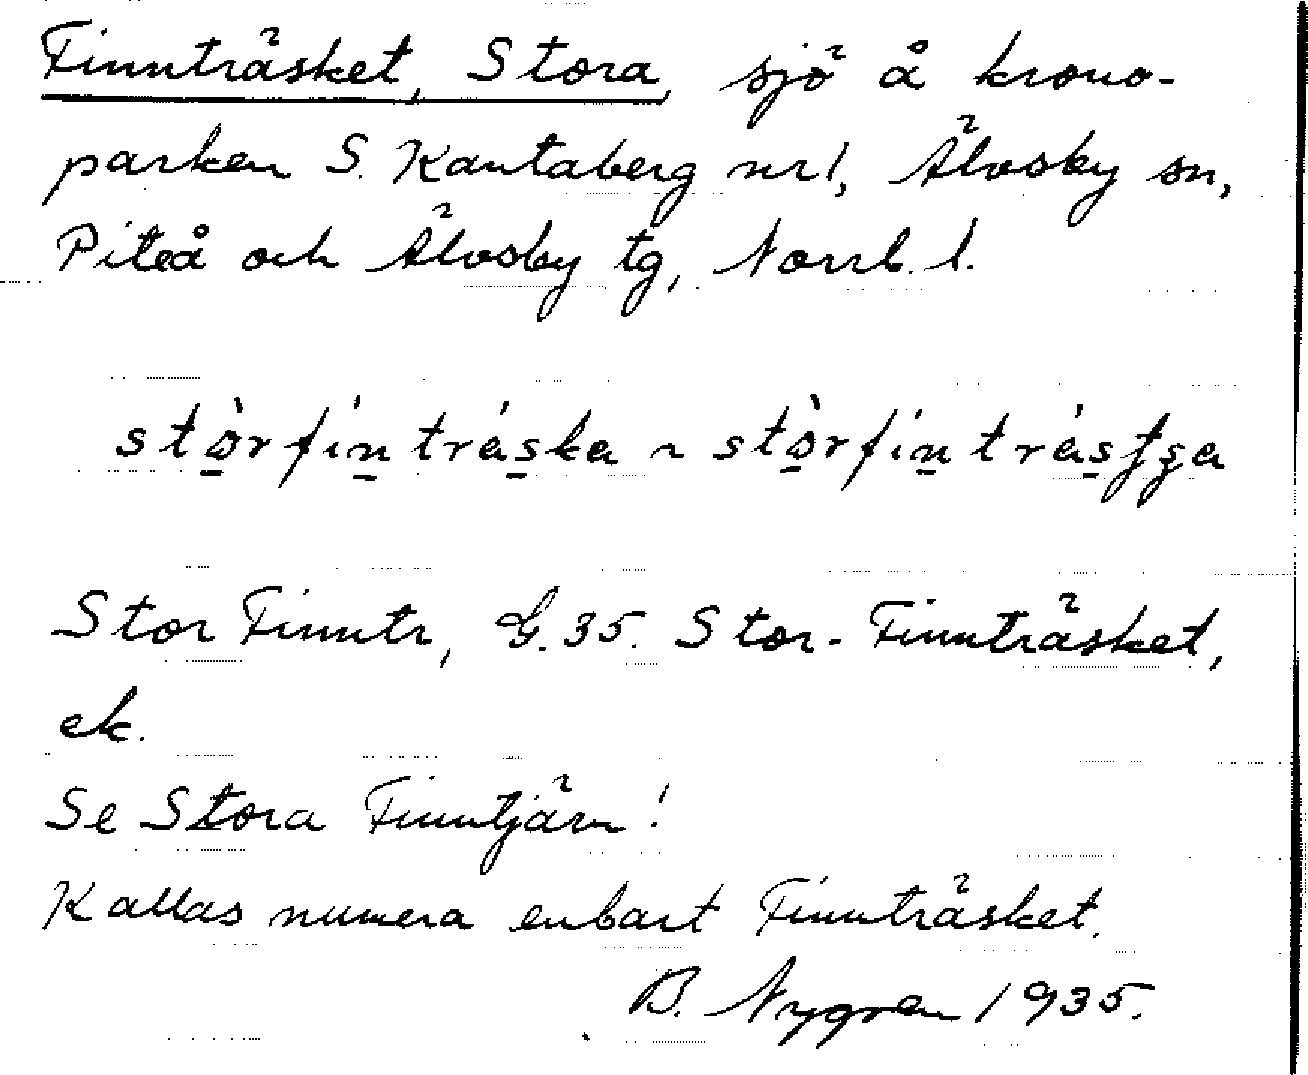 Finnträsket, Stora, sjö å krono-
parken S. Kantaberg nr 1, Älvsby sn,
Piteå och Älvsby tg, Norrb. l.
stòrfíntráska ~ stòrfíntrásʃʂa
Stor Finntr, G. 35. Stor-Finnträsket,
ek.
Se Stora Finntjärn!
Kallas numera enbart Finnträsket.
B. Nygren 1935.